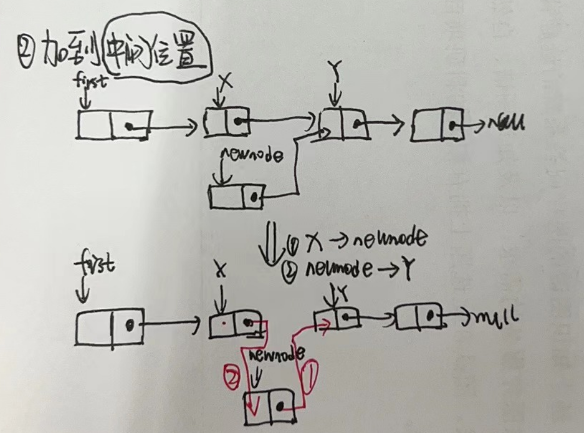 ② 加到中间位置
first
X
Y
null
newnode
① X → newnode
② newnode → Y
first
X
Y
null
newnode
②
①